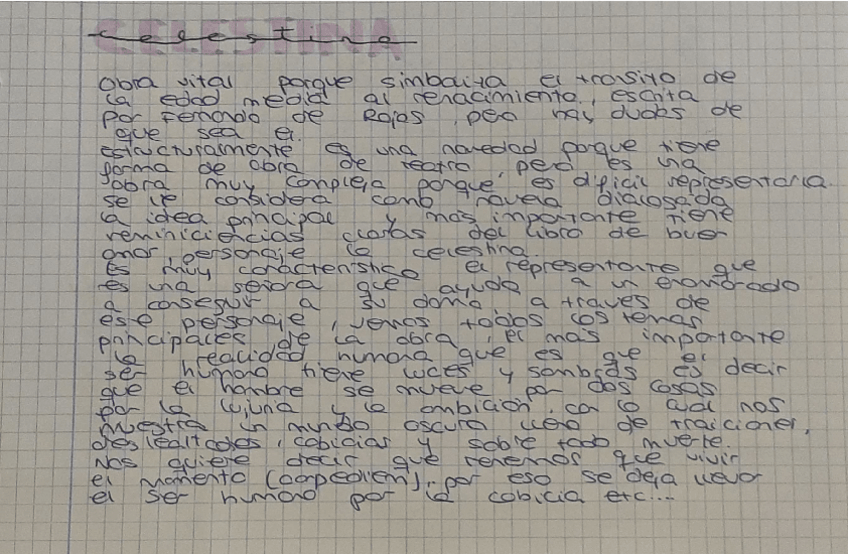 Celestina
Obra vital porque simboliza el transito de
la edad media al renacimiento, escrita
por Fernando de Rojas, pero hay dudas de
que sea el.
estructuralmente es una novedad porque tiene
forma de obra de teatro, pero es una
obra muy compleja porque es dificil representarla.
se le considera como novela dialogada
la idea principal y mas importante tiene
reminiciencias claras del libro de buen
amor, personaje la celestina.
es muy caracteristico el representante que
es una señora que ayuda a un enamorado
a conseguir a su dama, a traves de
ese personaje, vemos todos los temas
principales de la obra, el mas importante
la realidad humana que es que el
ser humano tiene luces y sombras es decir
que el hombre se mueve por dos cosas
por la lujuria y la ambicion, con lo cual nos
muestra un mundo oscuro lleno de traiciones,
deslealtades, cobicias y sobre todo muerte.
Nos quiere decir que tenemos que vivir
el momento (carpediem), por eso se deja llevar
el ser humano por la cobicia etc...